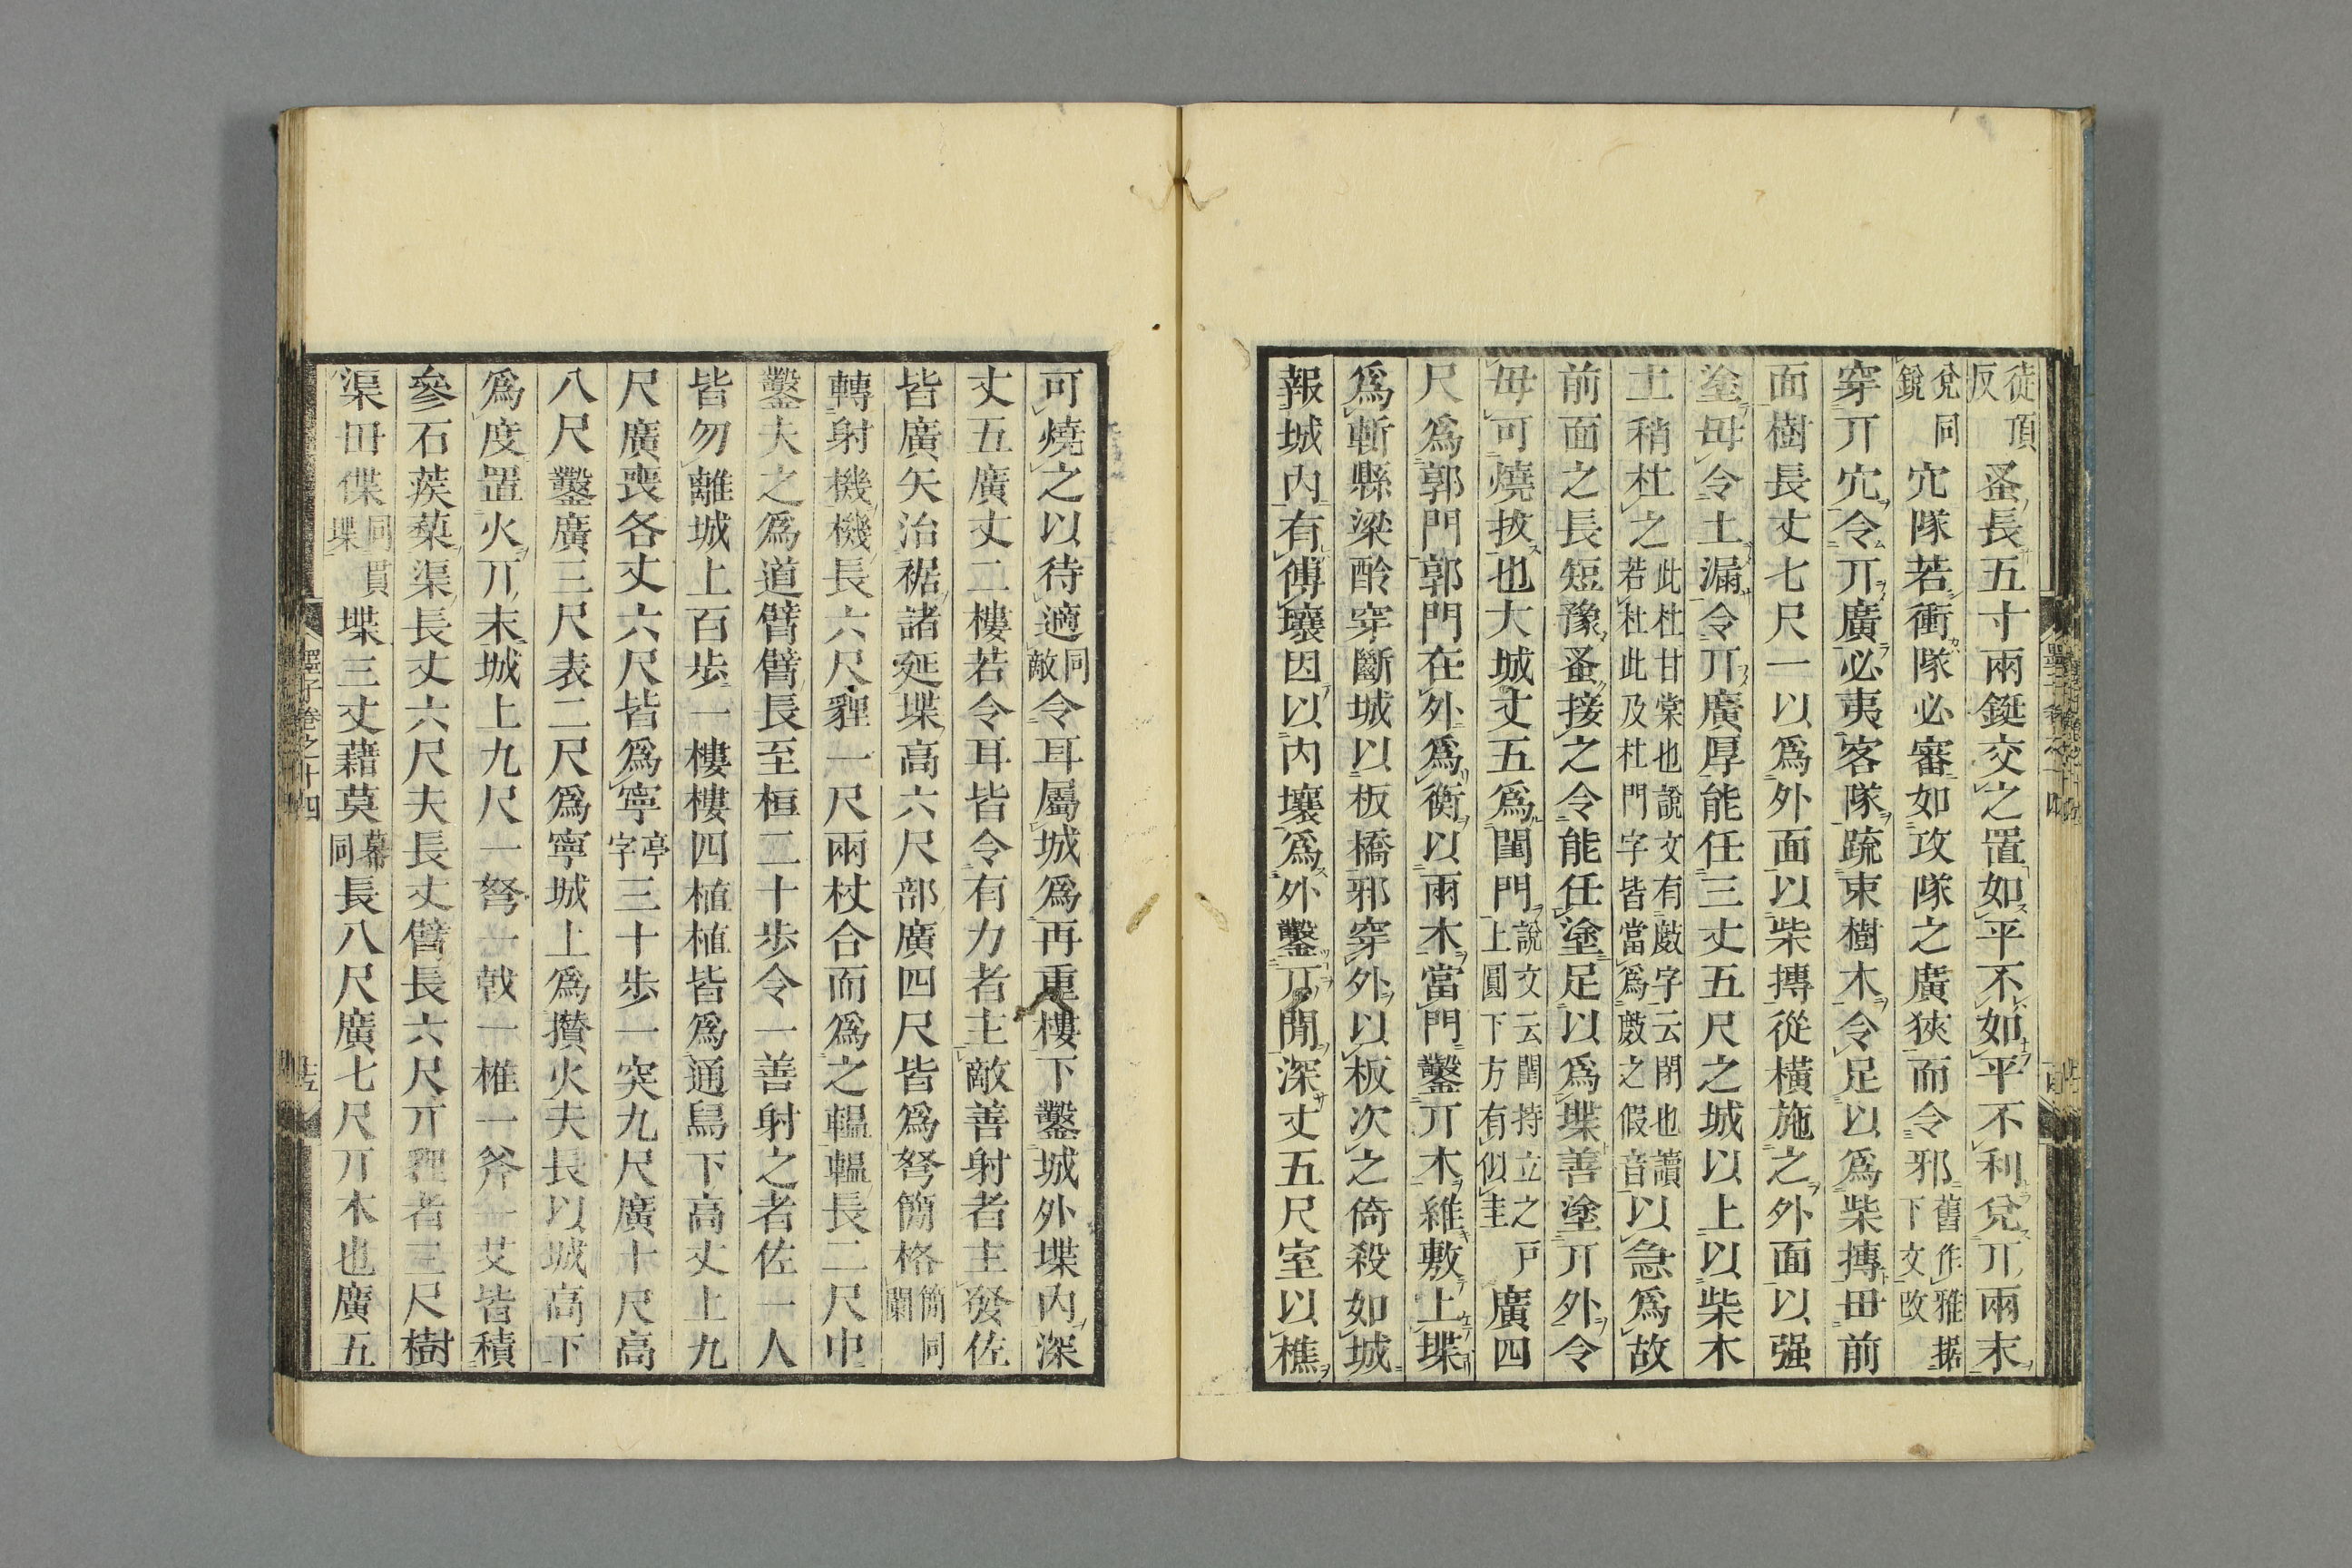 徒頂反蚤長五寸兩鋌交之置如平不如平不利兌丌兩末
兌同銳穴隊若衝隊必審如攻隊之廣狹而令邪舊作雅据下文改
穿丌穴令丌廣必夷客隊疏束樹木令足以爲柴摶毌前
面樹長丈七尺一以爲外面以柴摶從橫施之外面以强
塗毋令土漏令丌廣厚能任三丈五尺之城以上以柴木
土稍杜之此杜甘棠也說文有𢾖字云閉也讀若杜此及杜門字皆當爲𢾖之假音以急爲故
前面之長短豫蚤接之令能任塗足以爲堞善塗丌外令
毋可燒拔也大城丈五爲閨門說文云閨持立之戸上圓下方有似圭廣四
尺爲郭門郭門在外爲衡以兩木當門鑿丌木維敷上堞
爲斬縣梁酓穿斷城以板橋邪穿外以板次之倚殺如城
報城內有傅壤因以內壤爲外鑿丌閒深丈五尺室以樵
可燒之以待適同敵令耳屬城爲再重樓下鑿城外堞內深
丈五廣丈二樓若令耳皆令有力者主敵善射者主發佐
皆廣矢治裾諸延堞高六尺部廣四尺皆爲弩簡格簡同闌
轉射機機長六尺貍一尺兩杖合而爲之轀轀長二尺中
鑿夫之爲道臂臂長至桓二十步令一善射之者佐一人
皆勿離城上百步一樓樓四植植皆爲通舄下高丈上九
尺廣喪各丈六尺皆爲寧亭字三十步一突九尺廣十尺高
八尺鑿廣三尺表二尺爲寧城上爲攢火夫長以城高下
爲度置火丌末城上九尺一弩一戟一椎一斧一艾皆積
參石蒺藜渠長丈六尺夫長丈臂長六尺丌貍者三尺樹
渠毌傑同堞貫堞三丈藉莫幕同長八尺廣七尺丌木也廣五
墨子卷之十四